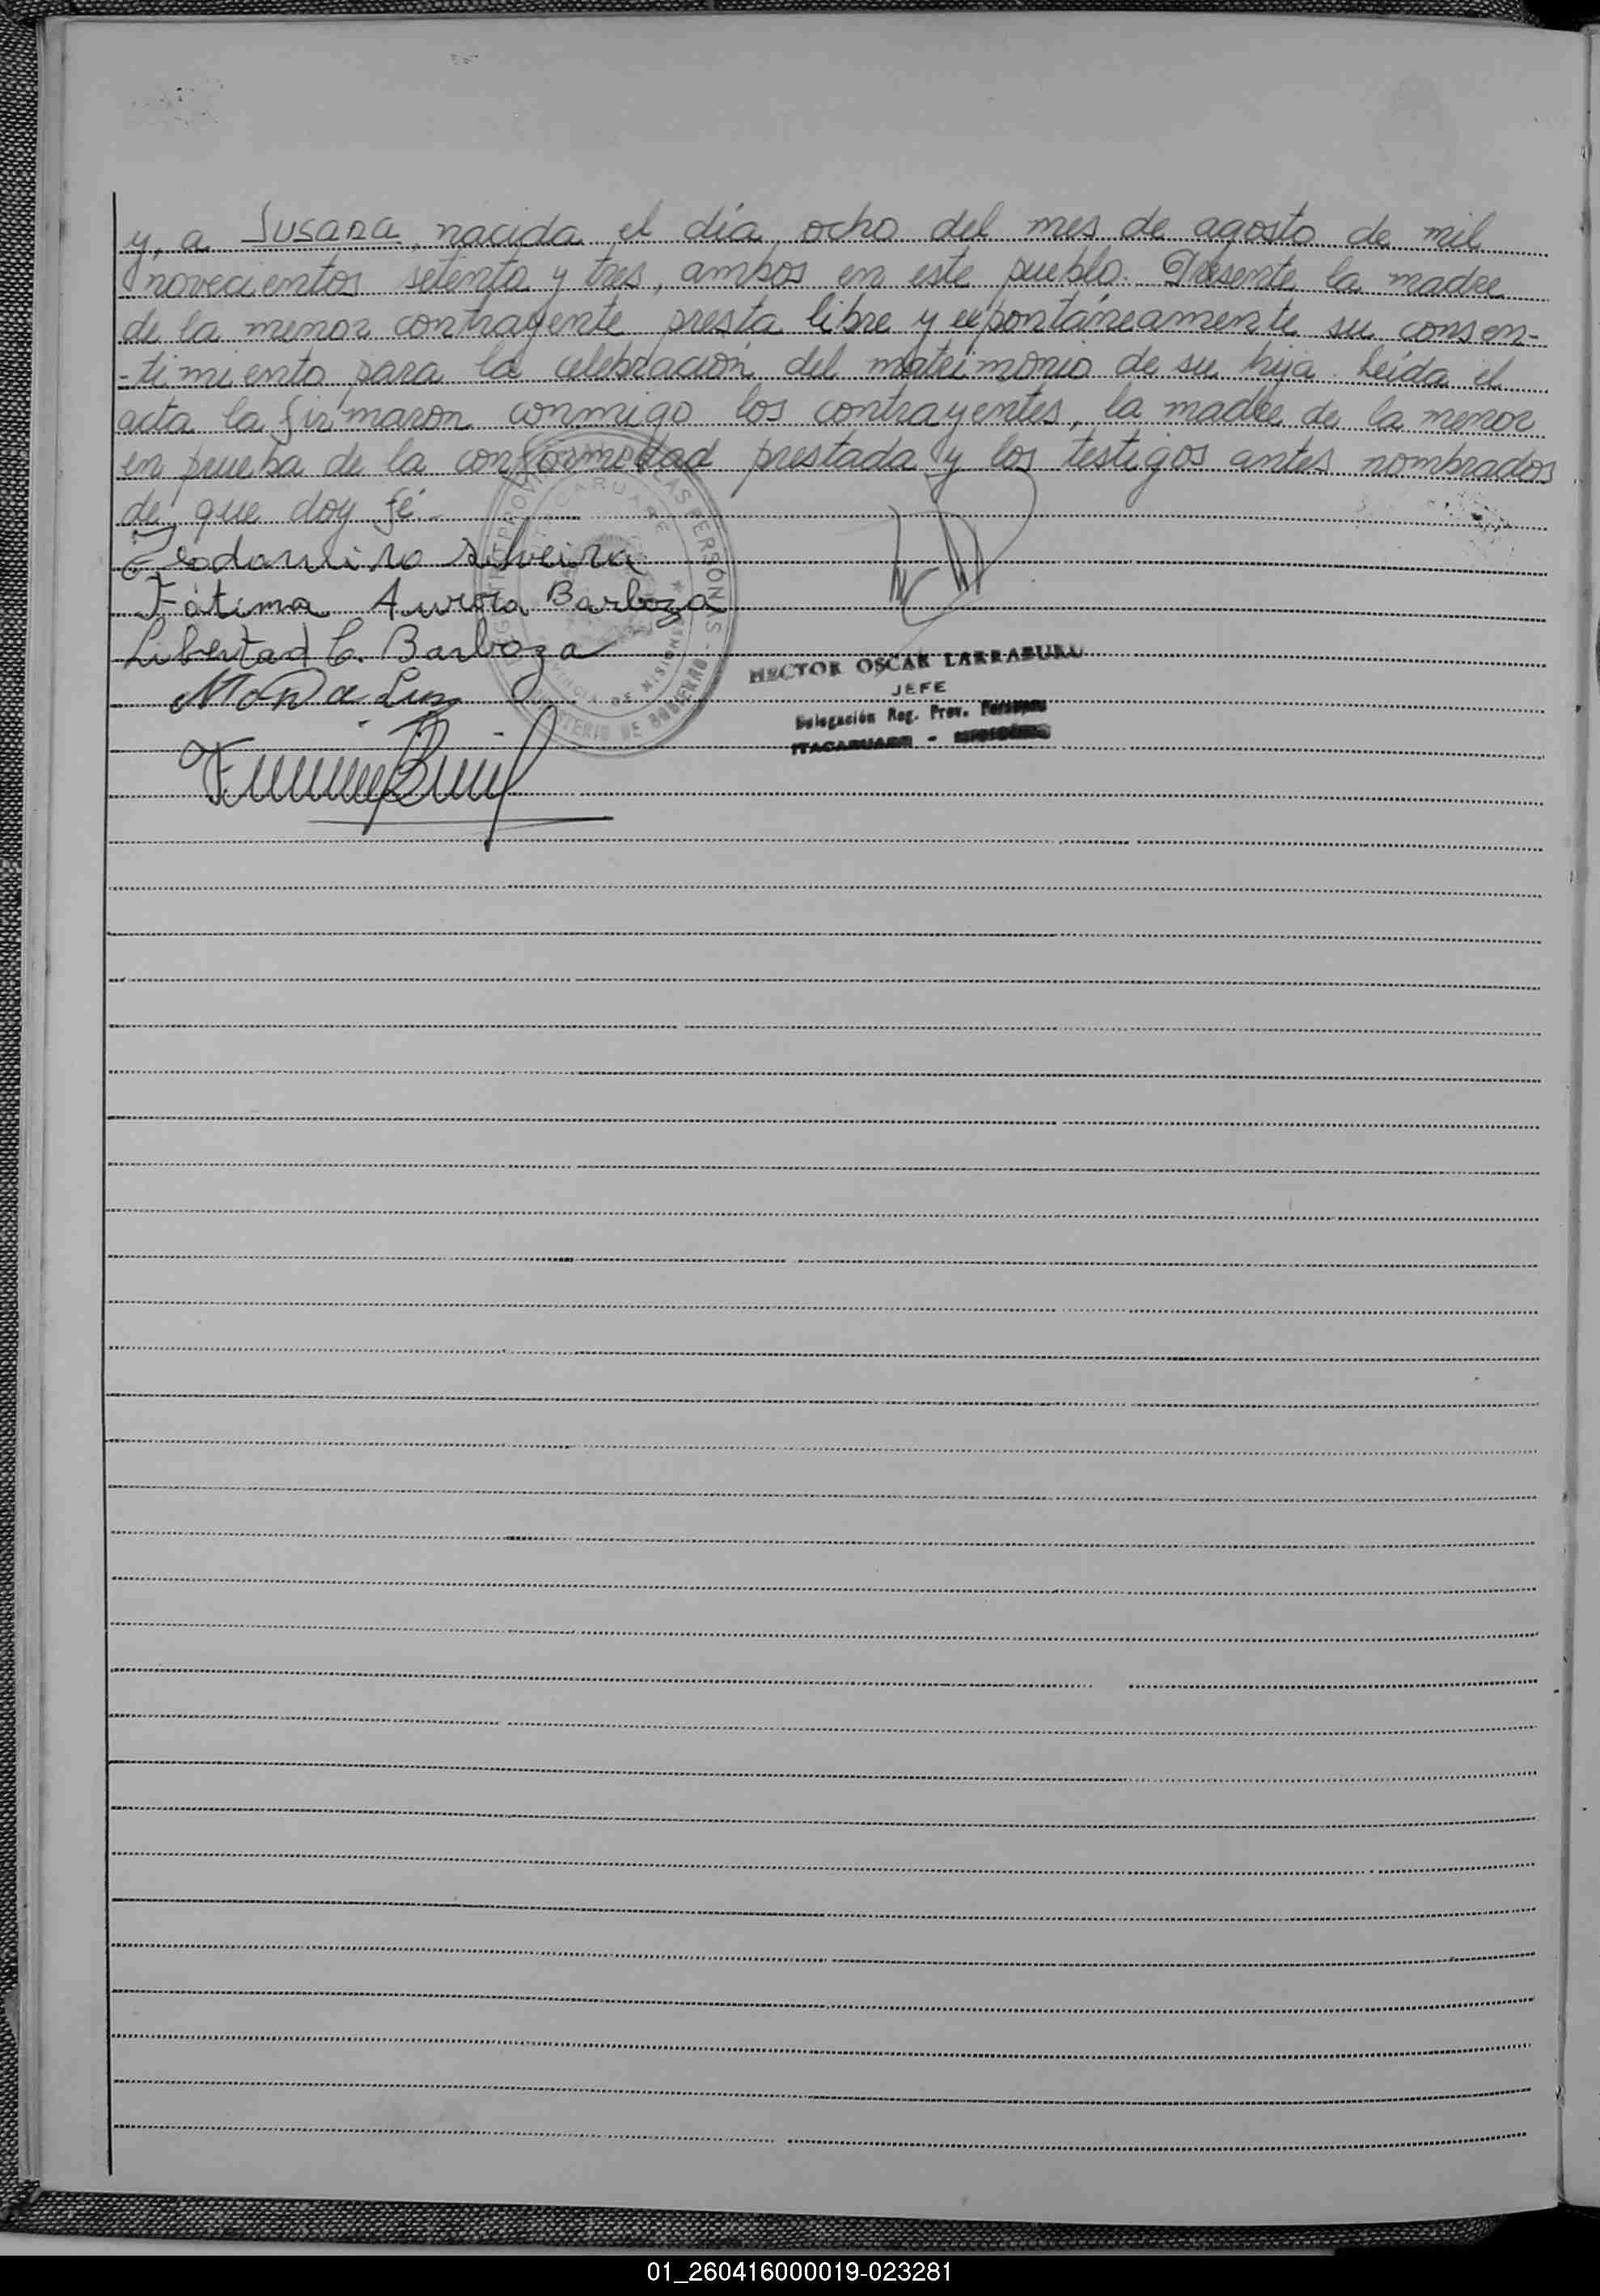 y, a Susana, nacida el día ocho del mes de agosto de mil
novecientos setenta y tres, ambos en este pueblo. Presente la madre
de la menor contrayente presta libre y expontáneamente su consen-
-timiento para la celebración del matrimonio de su hija. Leída el
acta la firmaron conmigo los contrayentes, la madre de la menor
en prueba de la conformidad prestada y los testigos antes nombrados
de que doy fé.-
Silveira
Fátima Aurora Barboza
Libertad C. Barboza
HECTOR OSCAR LARRABURU
JEFE
Delegación Reg. Prov. Personas
ITACARUARE - MISIONES
PROVINCIA DE MISIONES
MINISTERIO DE GOBIERNO
LAS PERSONAS
01_260416000019-023281